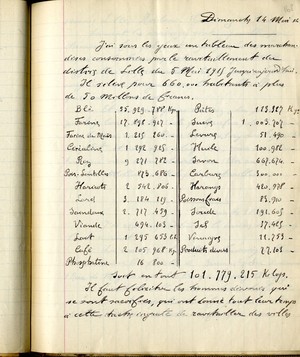 Dimanche 14 Mai 16
J'ai sous les yeux un tableau des marchan-
dises consommées par le ravitaillement du
district de Lille du 5 Mai 1915 jusqu'aujourd'hui.
Il s'élève pour 660,000 habitants à plus
de 50 millions de francs.
Blé 35.929.788 Kgs Pâtes 113.927 Kgs
Farine 17.898.917 - Sucre 1.003.707 -
Farine de Maïs 1.215.260 - Levure 51.490 -
Céréaline 1.292.915 - Huile 100.982 -
Riz 9.271.782 - Savon 667.674 -
Pois-Lentilles 873.686 - Carbure 300.000 -
Haricots 2.542.806 - Harengs 420.978 -
Lard 3.184.219 - Poissons 85.900 -
Saindoux 2.717.439 - Soude 191.605 -
Viande 694.103 - Sel 17.405 -
Lait 1.295.653 Vinaigre 11.753 -
Café 2.105.968 Kgs Produits divers 27.108 -
Phosphatine 16.800 -
Soit en tout 101.779.215 Kilogs.
Il faut féliciter les hommes dévoués qui
se sont sacrifiés, qui ont donné tout leur temps
à cette tâche de ravitailler des villes